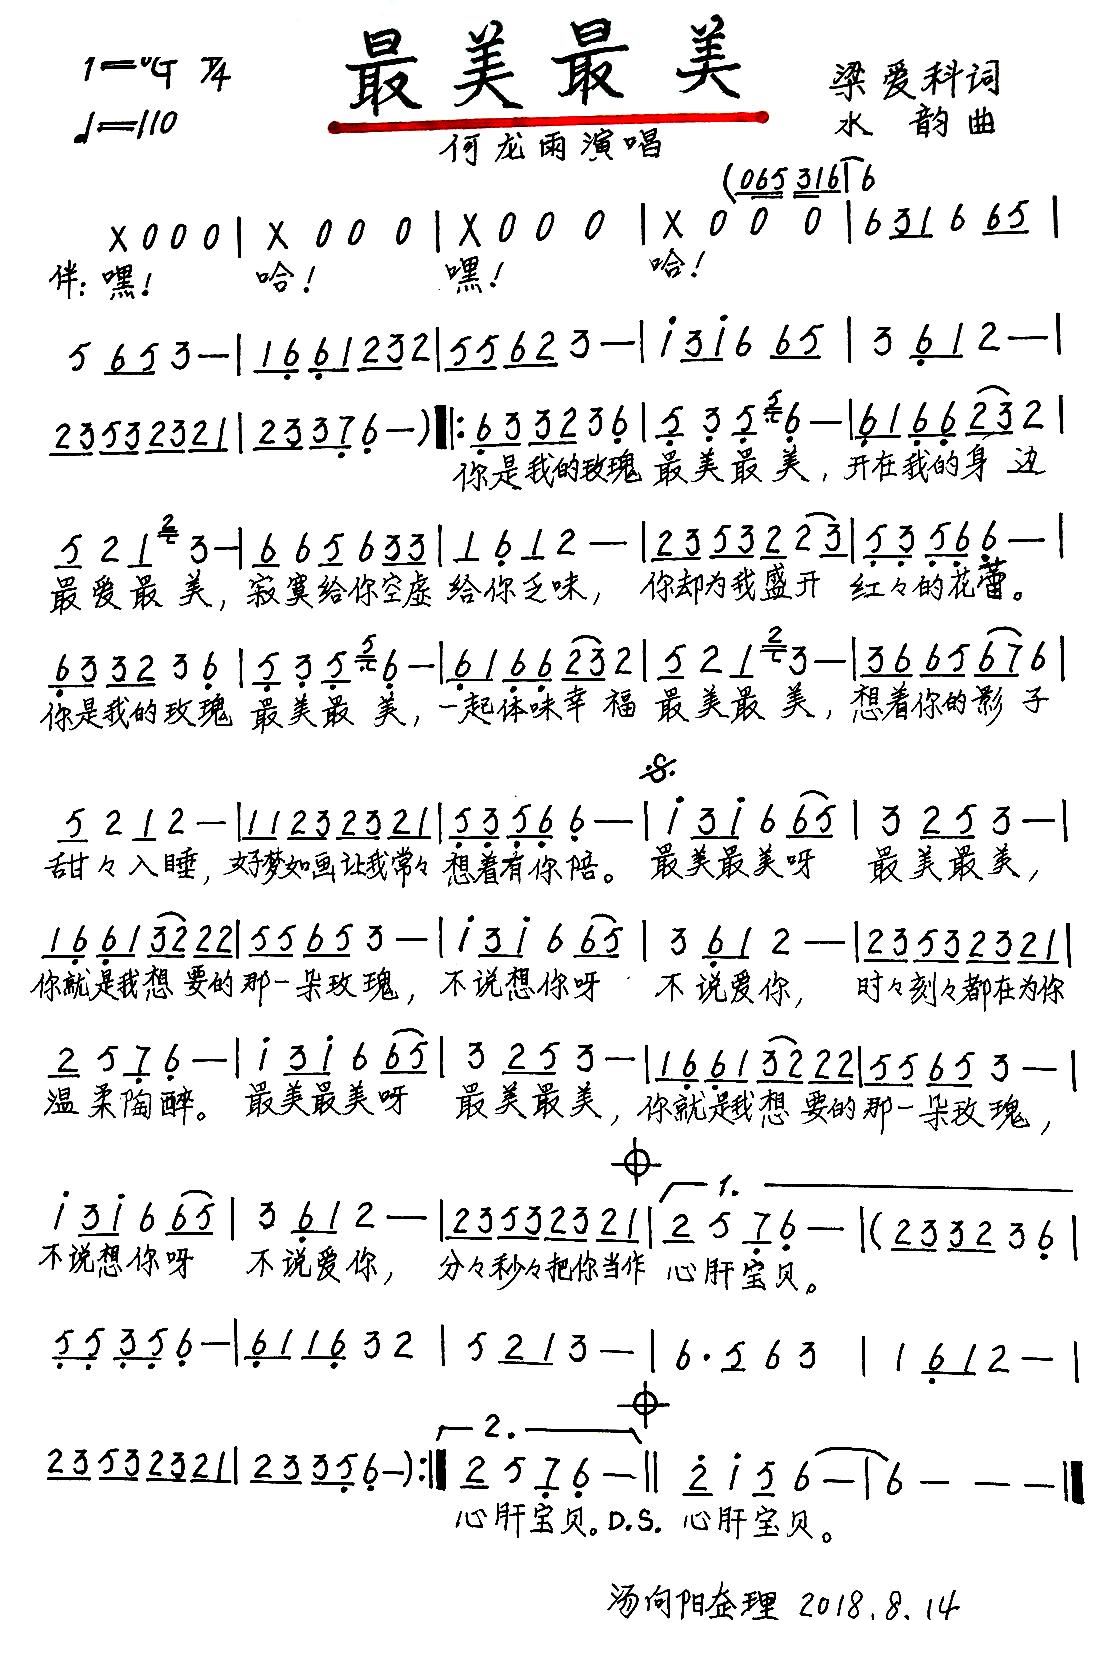 1=♭G 4/4
最美最美
梁爱科词
♩=110
水 韵曲
何龙雨演唱
(065 316 1 6
X 0 0 0 | X 0 0 0 | X 0 0 0 | X 0 0 0 | 6 31 6 65 |
伴:嘿! 哈! 嘿! 哈!
5 65 3 — | 16 61 23 2 | 55 62 3 — | i 3i 6 65 | 3 61 2 — |
23532321 | 2337 6 — ) ‖: 6332 3 6 | 5 3 5 6 — | 6166 23 2 |
你是我的玫瑰 最美最美, 开在我的身 边
5 2 1 3 — | 6 6 5 6 3 3 | 1 6 1 2 — | 2353 2 23 | 5356 6 — |
最爱最美, 寂寞给你空虚 给你乏味, 你却为我盛开 红々的花蕾。
6332 3 6 | 5 3 5 6 — | 6166 23 2 | 5 2 1 3 — | 3665 67 6 |
你是我的玫瑰 最美最美, 一起体味幸福 最美最美, 想着你的影子
5 2 1 2 — | 11232321 | 5356 6 — | i 3i 6 65 | 3 25 3 — |
甜々入睡, 好梦如画让我常々 想着有你陪。 最美最美呀 最美最美,
1661 3222 2 | 5565 3 — | i 3i 6 65 | 3 61 2 — | 23532321 |
你就是我想要的 那一朵玫瑰, 不说想你呀 不说爱你, 时々刻々都在为你
2 5 7 6 — | i 3i 6 65 | 3 25 3 — | 1661 3222 2 | 5565 3 — |
温柔陶醉。 最美最美呀 最美最美, 你就是我想要的 那一朵玫瑰,
1.
i 3i 6 65 | 3 61 2 — | 23532321 | 2 5 7 6 — | (2332 3 6 |
不说想你呀 不说爱你, 分々秒々把你当作 心肝宝贝。
5535 6 — | 6116 3 2 | 5 21 3 — | 6· 5 6 3 | 1 61 2 — |
2.
23532321 | 2335 6 — ) :‖ 2 5 7 6 — ‖ 2 i 5 6 — | 6 — — — ‖
心肝宝贝。D.S. 心肝宝贝。
汤向阳整理 2018.8.14